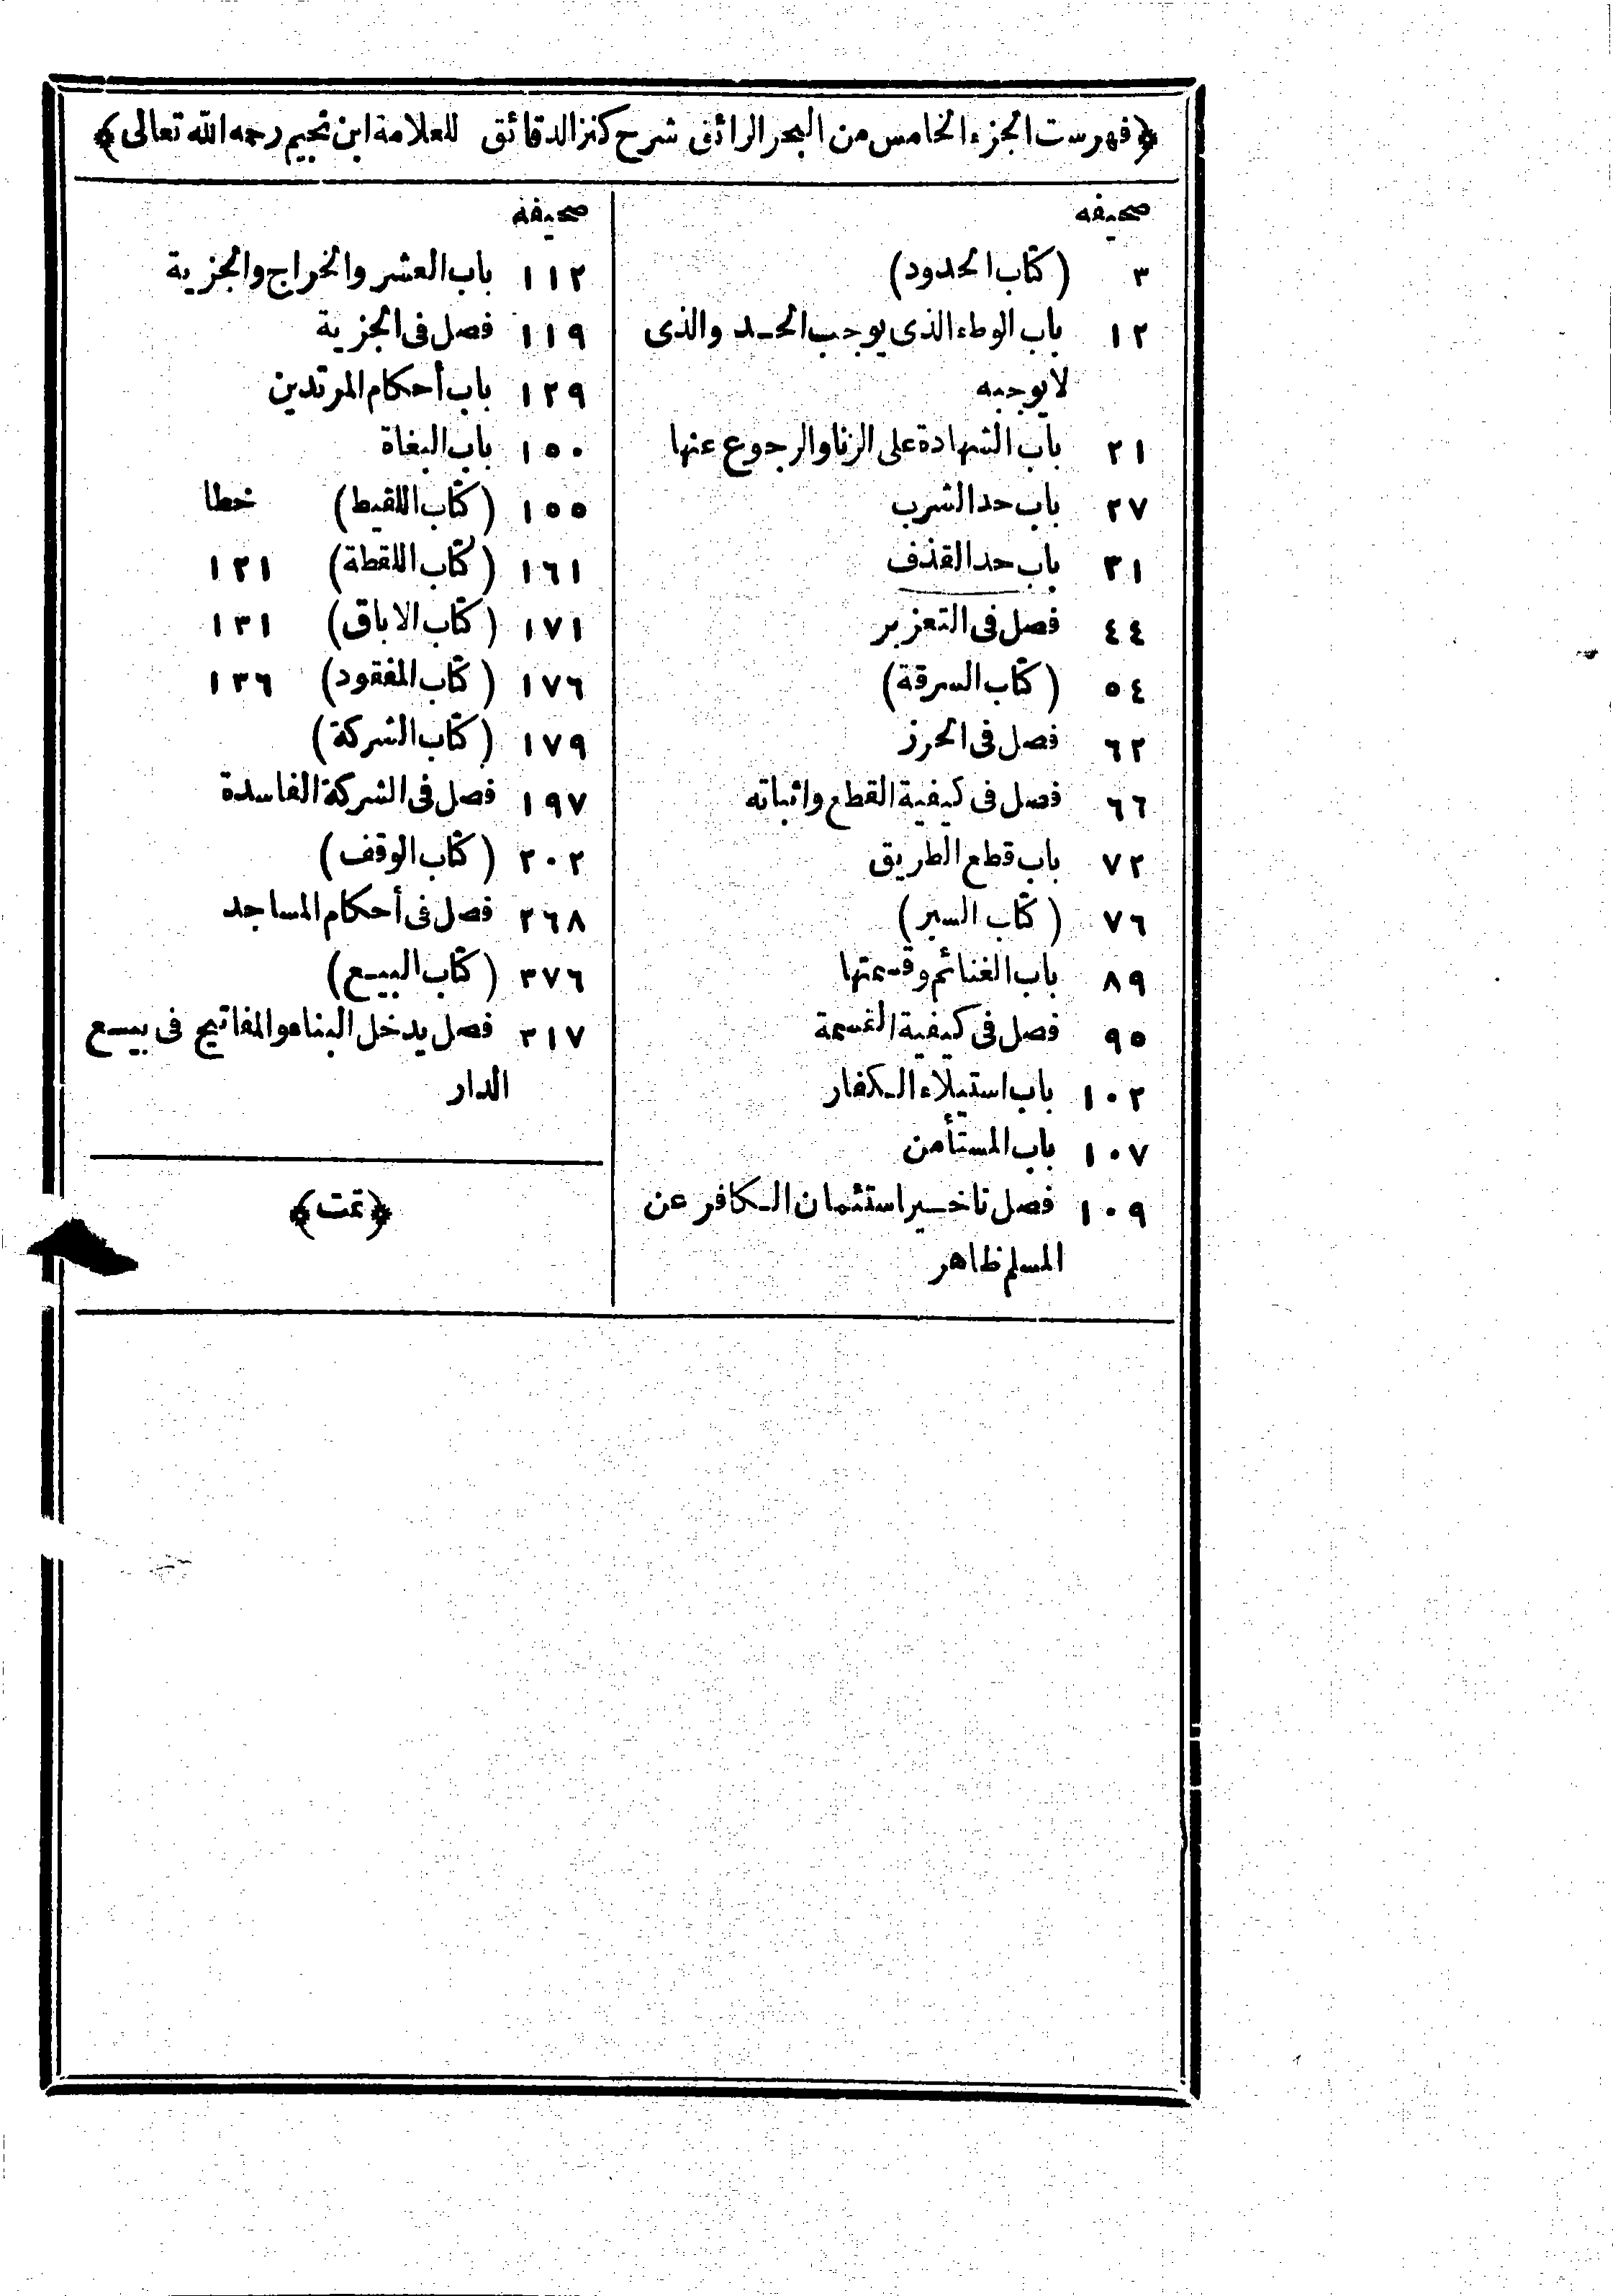 ﴿فهرست الجزء الخامس من البحر الرائق شرح كنز الدقائق للعلامة ابن نجيم رحمه الله تعالى﴾
صحيفه
٣ (كتاب الحدود)
١٢ باب الوطء الذى يوجب الحد والذى
لا يوجبه
٢١ باب الشهادة على الزنا والرجوع عنها
٢٧ باب حد الشرب
٣١ باب حد القذف
٤٤ فصل فى التعزير
٥٤ (كتاب السرقة)
٦٢ فصل فى الحرز
٦٦ فصل فى كيفية القطع واثباته
٧٢ باب قطع الطريق
٧٦ (كتاب السير)
٨٩ باب الغنائم وقسمتها
٩٥ فصل فى كيفية القسمة
١٠٢ باب استيلاء الكفار
١٠٧ باب المستأمن
١٠٩ فصل تاخير استئمان الكافر عن
المسلم ظاهر
صحيفه
١١٢ باب العشر والخراج والجزية
١١٩ فصل فى الجزية
١٢٩ باب أحكام المرتدين
١٥٠ باب البغاة
١٥٥ (كتاب اللقيط) خطا
١٦١ (كتاب اللقطة) ١٢١
١٧١ (كتاب الاباق) ١٣١
١٧٦ (كتاب المفقود) ١٣٦
١٧٩ (كتاب الشركة)
١٩٧ فصل فى الشركة الفاسدة
٢٠٢ (كتاب الوقف)
٢٦٨ فصل فى أحكام المساجد
٢٧٦ (كتاب البيع)
٣١٧ فصل يدخل البناء والمفاتيح فى بيع
الدار
﴿تمت﴾